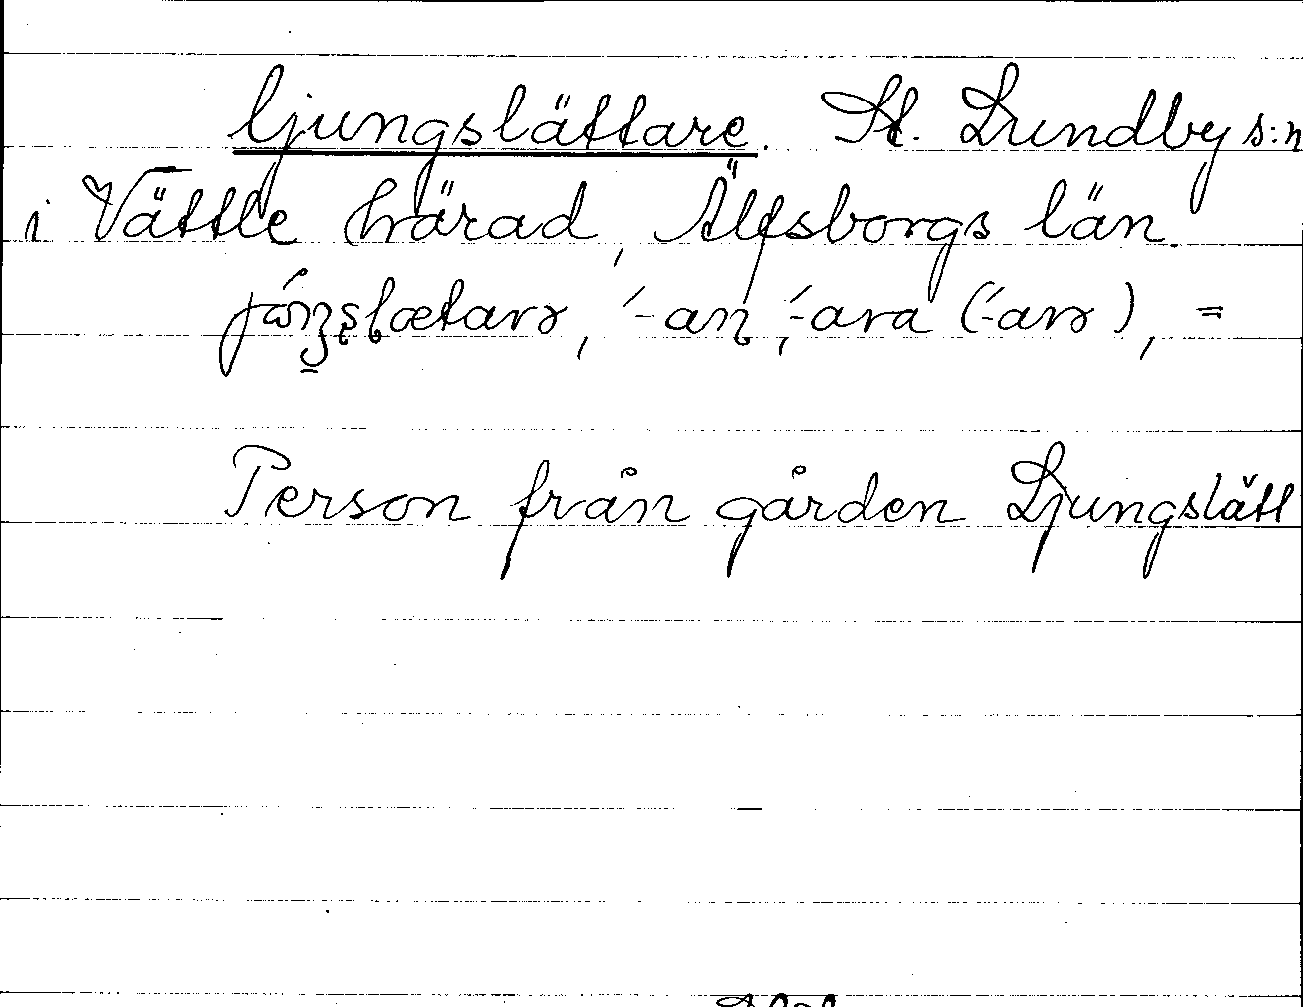 ljungslättare. St. Lundby s:n
i Vättle härad, Älfsborgs län.
-an, -ara (-arɘ), =
Person från gården Ljungslätt